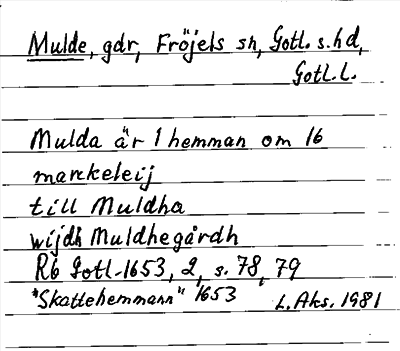 Mulde, gdr, Fröjels sn, Gotl. s. hd,
Gotl. L.
Mulda är 1 hemman om 16
marckeleij
till Muldha
wijdh Muldhegårdh
Rb Gotl. 1653, 2, s. 78, 79
"Skattehemmann" 1653
L. Aks. 1981